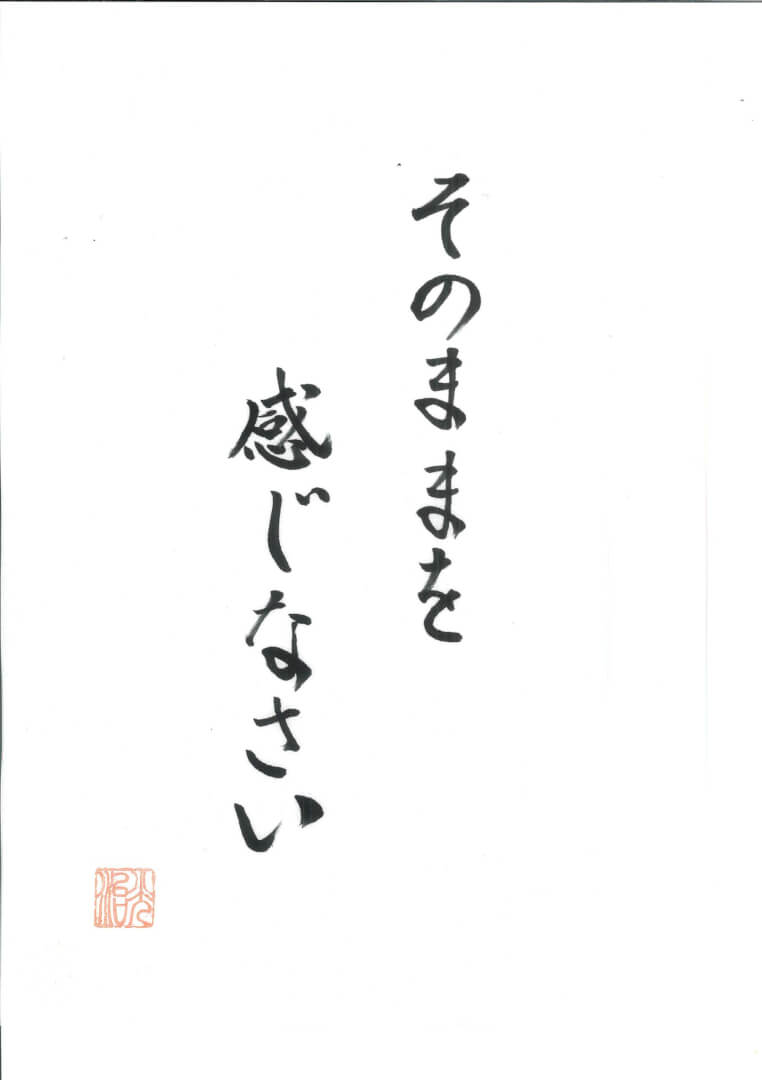 そのままを
感じなさい